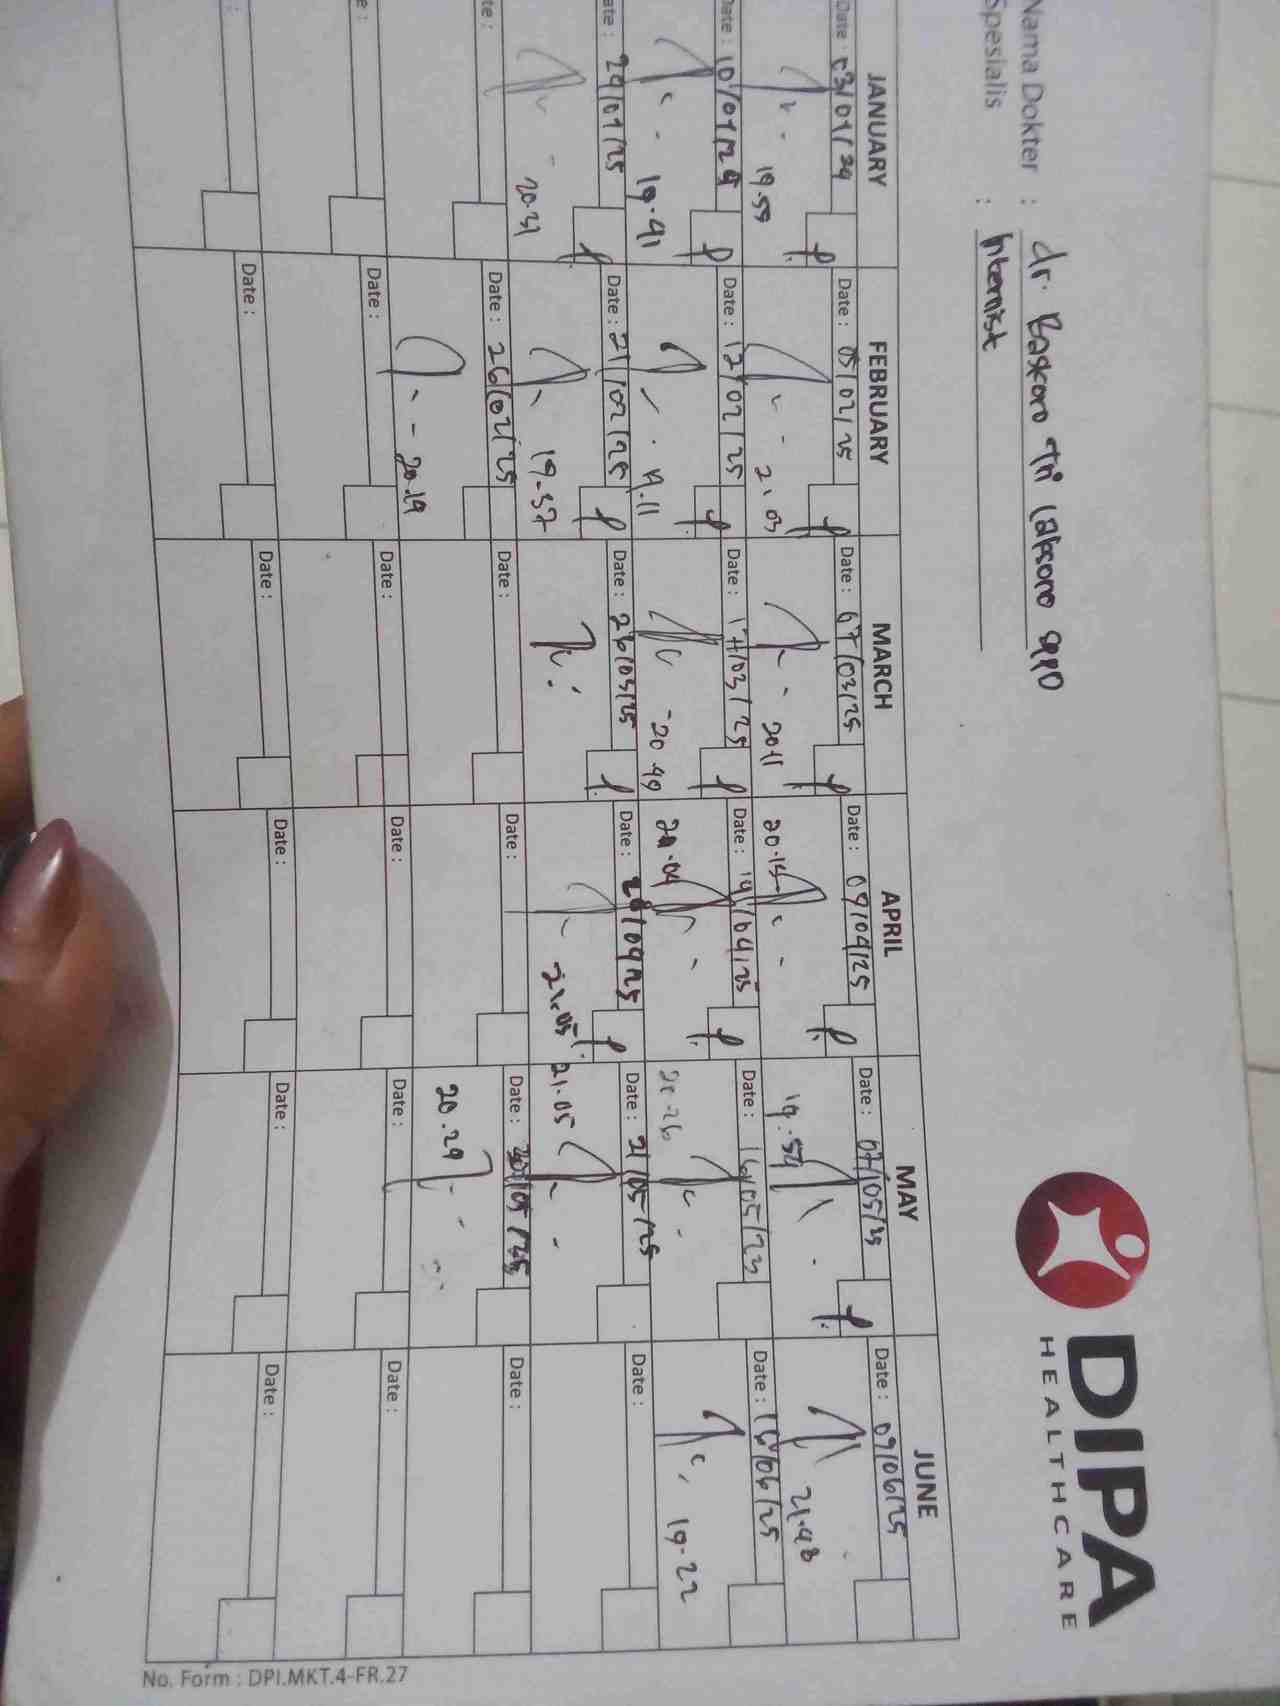 DIPA
HEALTHCARE
Nama Dokter : dr. Baskoro Tri Laksono SpPD
Spesialis : Internist
JANUARY FEBRUARY MARCH APRIL MAY JUNE
Date : 03/01/24 Date : 05/02/25 Date : 07/03/25 Date : 09/04/25 Date : 07/05/25 Date : 09/06/25
19.59 21.03 20.11 20.15 19.54 21.48
Date : 10/01/24 Date : 12/02/25 Date : 17/03/25 Date : 14/04/25 Date : 16/05/25 Date : 16/06/25
19.41 19.11 20.49 20.04 20.26 19.22
ate : 24/01/25 Date : 21/02/25 Date : 26/03/25 Date : 28/04/25 Date : 21/05/25 Date :
20.31 19.37 21.05 21.05
te : Date : 26/02/25 Date : Date : Date : 30/05/25 Date :
20.19 20.29
e : Date : Date : Date : Date : Date :
: Date : Date : Date : Date : Date :
No. Form : DPI.MKT.4-FR.27